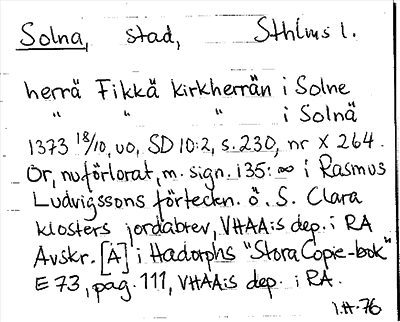 Solna, stad, Sthlms l.
herrä Fikkä kirkherrän i Solne
" " " i Solnä
1373 18/10, uo, SD 10:2, s. 230, nr X 264.
Or, nu förlorat, m. sign. i35: ∞ i Rasmus
Ludvigssons förteckn. ö. S. Clara
klosters jordabrev, VHAA:s dep. i RA
Avskr. [A] i Hadorphs "Stora Copie-bok"
E 73, pag. 111, VHAA:s dep. i RA.
I.H-76